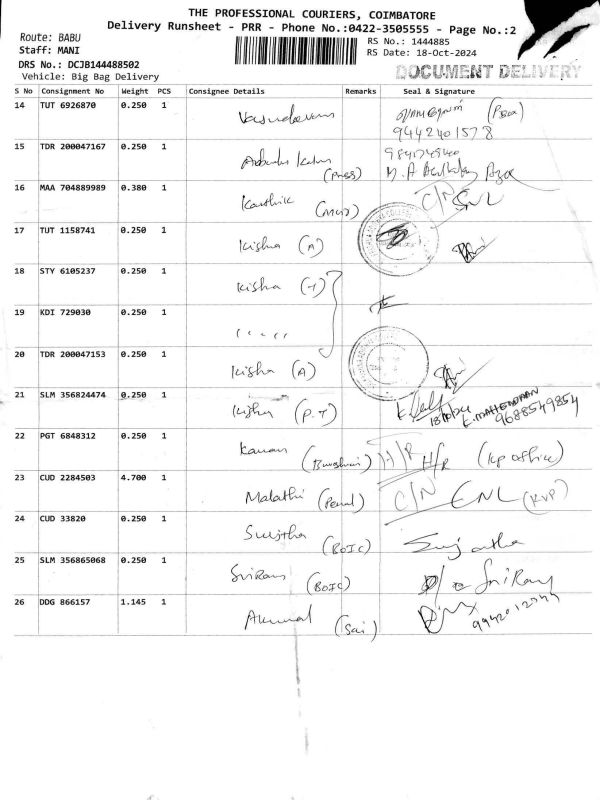 THE PROFESSIONAL COURIERS, COIMBATORE
Delivery Runsheet - PRR - Phone No.:0422-3505555 - Page No.:2
Route: BABU
Staff: MANI
RS No.: 1444885
RS Date: 18-Oct-2024
DRS No.: DCJB144488502
Vehicle: Big Bag Delivery
DOCUMENT DELIVERY
S No Consignment No Weight PCS Consignee Details Remarks Seal & Signature
14 TUT 6926870 0.250 1 Vasudevan
9442401578
15 TDR 200047167 0.250 1
16 MAA 704889989 0.380 1 Karthik C/N
17 TUT 1158741 0.250 1 Kisha (A)
18 STY 6105237 0.250 1 Kisha (T)
19 KDI 729030 0.250 1 " " " "
20 TDR 200047153 0.250 1 Kisha (A)
21 SLM 356824474 0.250 1 Kisha (P.T) 18/10/24 E. MAHENDRAN
9688549854
22 PGT 6848312 0.250 1 Kannan H/R H/R (Kp office)
23 CUD 2284503 4.700 1 Malathi C/N (KVP)
24 CUD 33820 0.250 1 Sujitha (BOIC) Sujatha
25 SLM 356865068 0.250 1 SriRam (BOIC) SriRam
26 DDG 866157 1.145 1 (Sai)